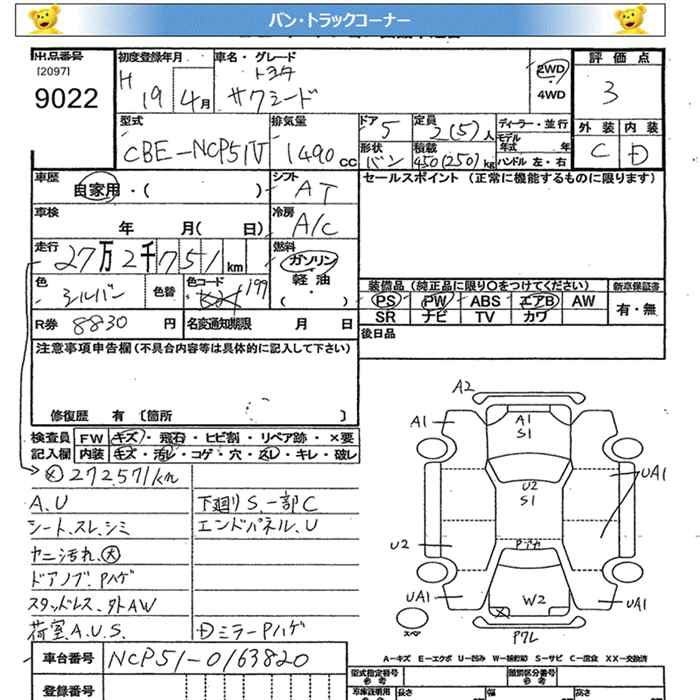 バン・トラックコーナー
出品番号 初度登録年月 車名・グレード 評価点
[2097] H トヨタ 2WD
9022 19 4月 サクシード 4WD 3
型式 排気量 ドア 5 定員 2(5)人 ディーラー・並行 外装 内装
モデル年式 年
CBE-NCP51V 1490cc 形状 バン 積載 450(250)kg ハンドル 左・右 C D
車歴 自家用・( ) シフト AT セールスポイント (正常に機能するものに限ります)
車検 年 月( 日) 冷房 A/C
走行 27万2千751km 燃料 ガソリン
軽油
・( )
色 シルバー 色替 色コード 199 装備品 (純正品に限り○をつけてください) 新車保証書
PS PW ABS エアB AW 有・無
R券 8830円 名変通知期限 月 日 SR ナビ TV カワ
後日品
注意事項申告欄(不具合内容等は具体的に記入して下さい)
修復歴 有 〔箇所 〕
検査員 FW キズ・飛石・ヒビ割・リペア跡・×要
記入欄 内装 キズ・汚レ・コゲ・穴・スレ・キレ・破レ
メ 272,571km
A.U 下廻りS.一部C
シート.スレ.シミ エンドパネル.U
ヤニ汚れ.大
ドアノブ.Pハゲ
スタッドレス.外AW
荷室.A.U.S. Dミラー Pハゲ
A2
A1 A1 A1
S1
U2 UA1
S1
U2 Pアヤ
UA1 W2 UA1
スペア P7L
A-キズ E-エクボ U-凹み W-補修跡 S-サビ C-腐食 XX-交換済
車台番号 NCP51-0163820
登録番号
型式指定番号 参考 類別区分番号 参考
長さ 幅 高さ